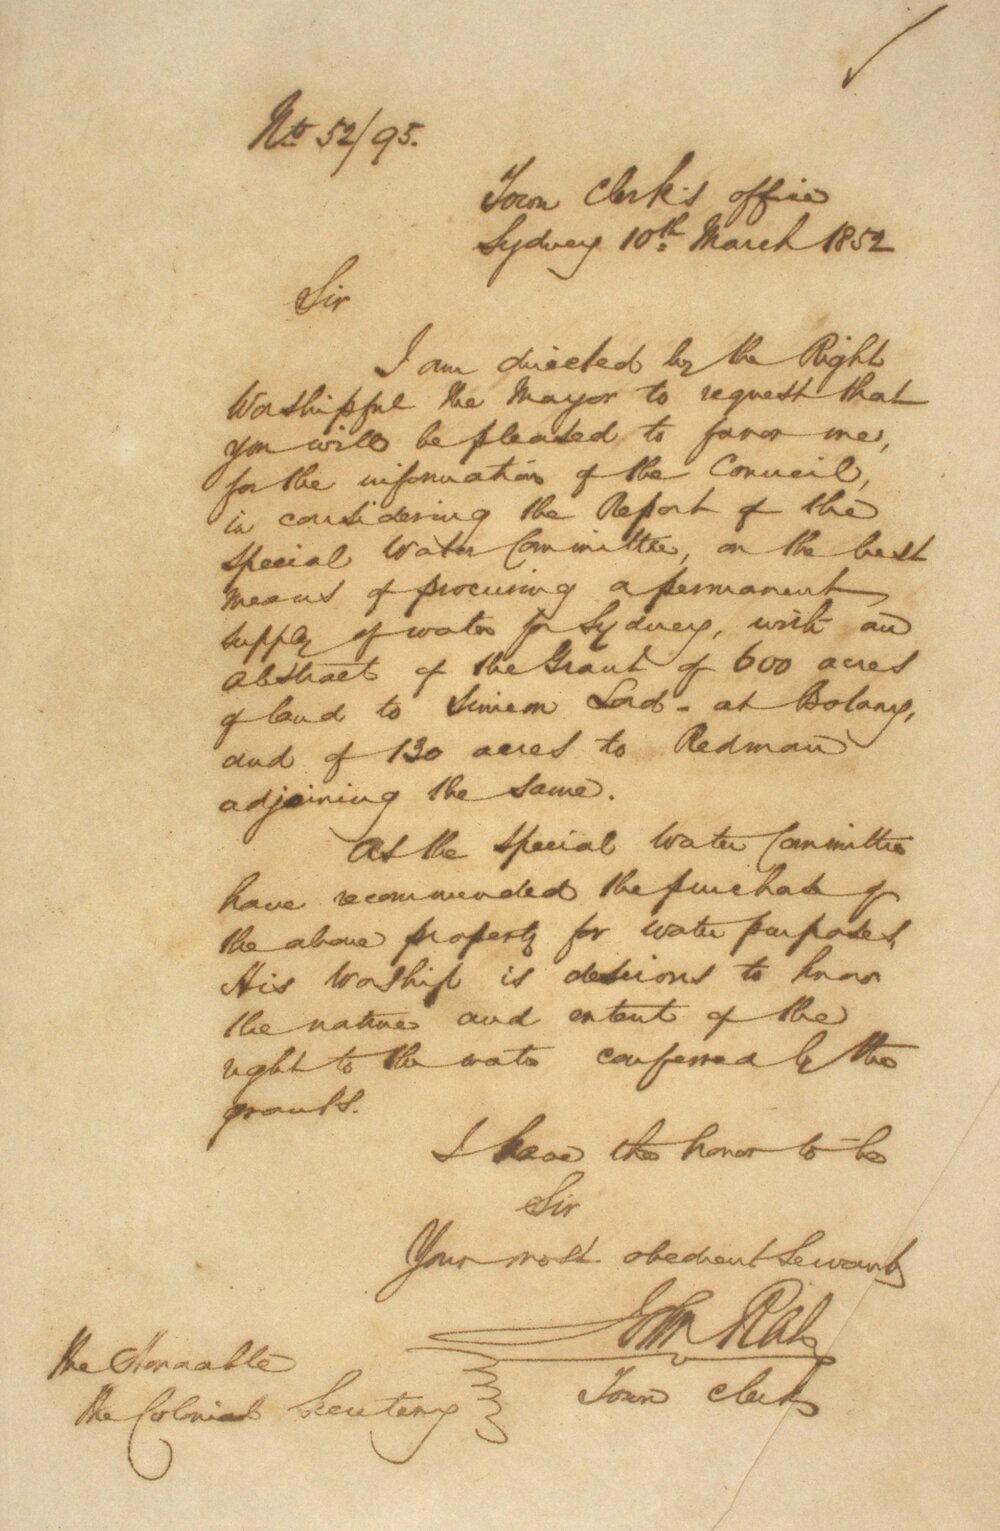 No. 52/95.
Town Clerk's office
Sydney 10th March 1852
Sir
I am directed by the Right
Worshipful the Mayor to request that
you will be pleased to favor me,
for the information of the Council,
in considering the Report of the
Special Water Committee, on the best
means of procuring a permanent
supply of water for Sydney, with an
abstract of the Grant of 600 acres
of land to Simeon Lord - at Botany,
and of 130 acres to Redman
adjoining the same.
As the Special Water Committee
have recommended the purchase of
the above property for water purposes,
His Worship is desirous to know
the nature and extent of the
right to the water conferred by the
grants.
I have the honor to be
Sir
Your most obedient Servant
John Rae
Town Clerk
The Honorable
The Colonial Secretary